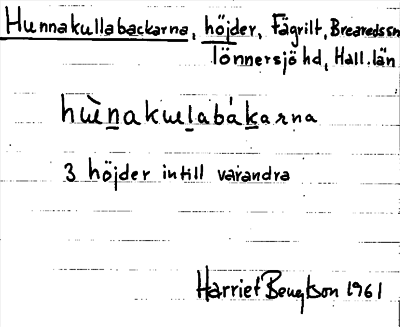 Hunnakullabackarna, höjder, Fägrilt, Breareds sn
Tönnersjö hd, Hall. län
hẁnakɯlabákarna
3 höjder intill varandra
Harriet Bengtson 1961